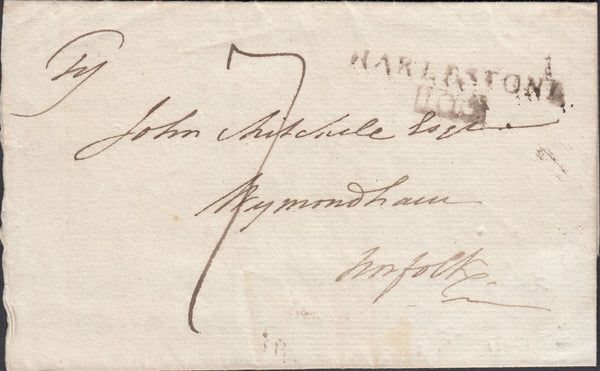 HARLESTON
John Mitchele Esqre
Wymondham
Norfolk
7